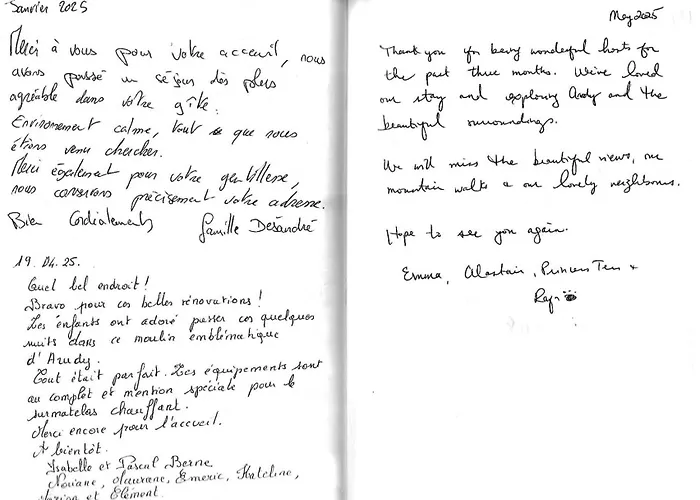 Janvier 2025
Merci à vous pour votre acceuil, nous
avons passé un séjour des plus
agréable dans votre gîte.
Environement calme, tout ce que nous
étions venu chercher.
Merci également pour votre gentillesse,
nous conservons précisement votre adresse.
Bien Cordialement
famille Desandré
19.04.25.
Quel bel endroit !
Bravo pour ces belles rénovations !
Les enfants ont adoré passer ces quelques
nuits dans ce moulin emblématique
d'Arudy.
Tout était parfait. Les équipements sont
au complet et mention spéciale pour le
surmatelas chauffant.
Merci encore pour l'accueil.
A bientôt.
Isabelle et Pascal Berne
Emeric,
et Clément
May 2025
Thank you for being wonderful hosts for
the past three months. We've loved
our stay and exploring Arudy and the
beautiful surroundings.
We will miss the beautiful views, our
mountain walks & our lovely neighbours.
Hope to see you again.
Emma, Alastair, Princess Tess &